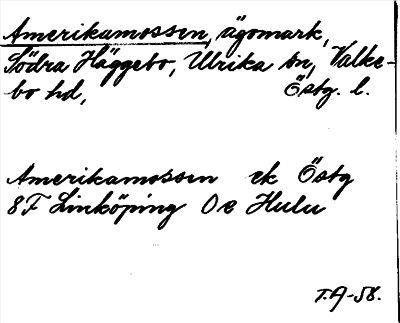 Amerikamossen, ägomark,
Södra Häggebo, Ulrika sn, Valke-
bo hd, Östg. l.
Amerikamossen ek Östg
8F Linköping 0e Hulu
T.A-58.